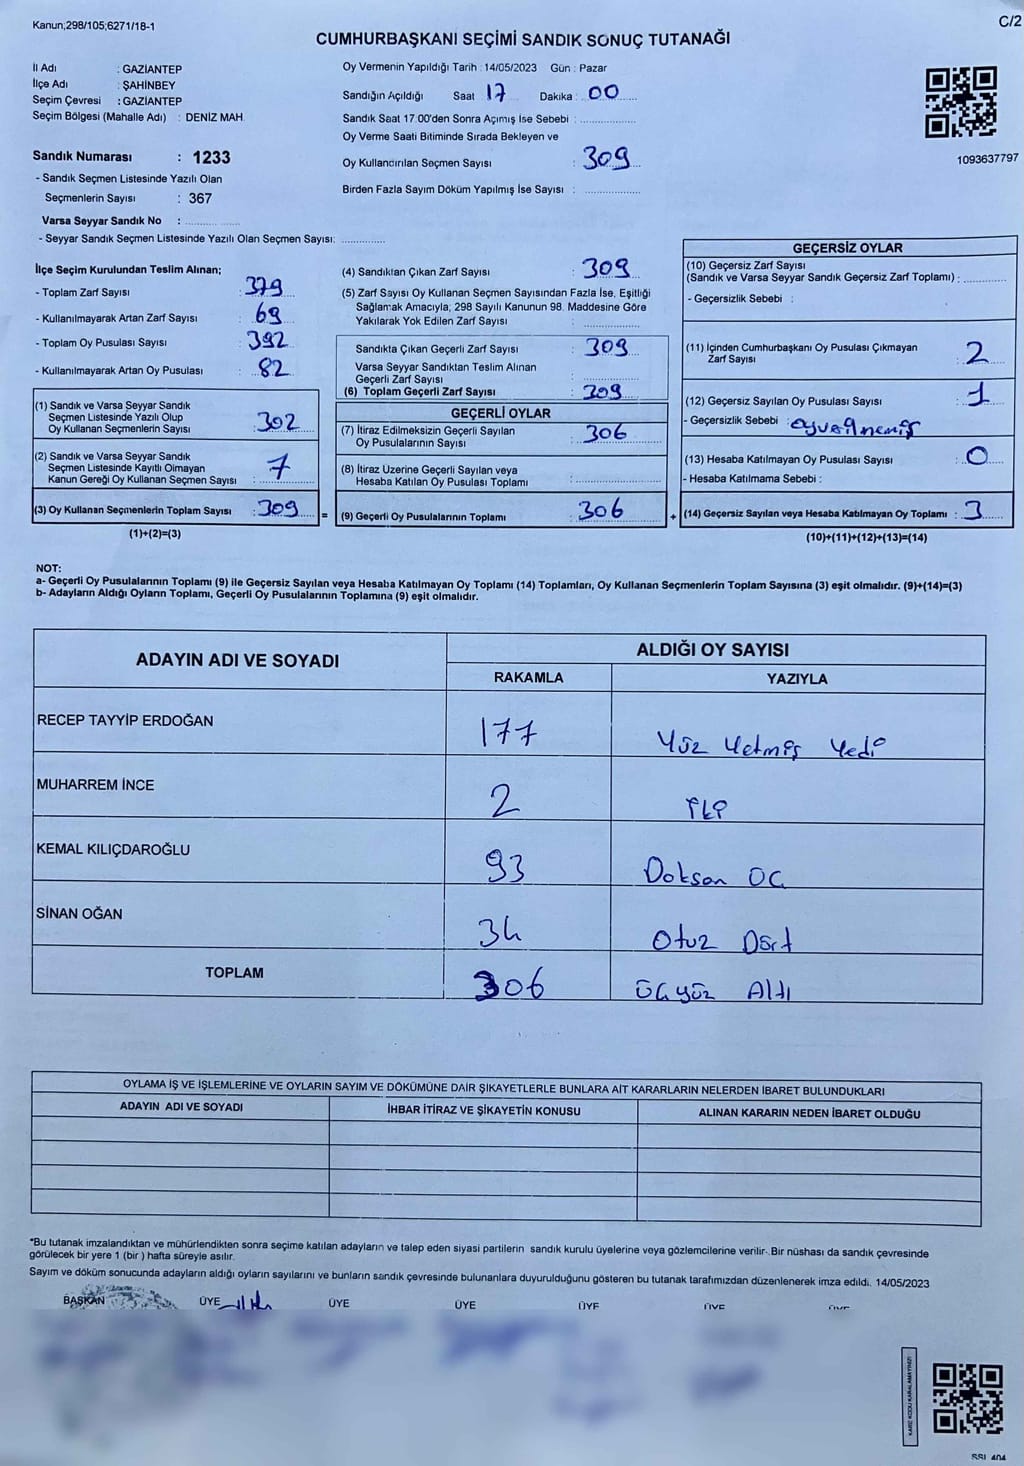 Kanun;298/105;6271/18-1
C/2
CUMHURBAŞKANI SEÇİMİ SANDIK SONUÇ TUTANAĞI
İl Adı : GAZİANTEP
İlçe Adı : ŞAHİNBEY
Seçim Çevresi : GAZİANTEP
Seçim Bölgesi (Mahalle Adı) : DENİZ MAH.
Sandık Numarası : 1233
- Sandık Seçmen Listesinde Yazılı Olan
Seçmenlerin Sayısı : 367
Varsa Seyyar Sandık No : ..............
- Seyyar Sandık Seçmen Listesinde Yazılı Olan Seçmen Sayısı: ..............
Oy Vermenin Yapıldığı Tarih : 14/05/2023 Gün : Pazar
Sandığın Açıldığı Saat 17 Dakika : 00
Sandık Saat 17:00'den Sonra Açımış İse Sebebi : ..............
Oy Verme Saati Bitiminde Sırada Bekleyen ve
Oy Kullandırılan Seçmen Sayısı : 309
Birden Fazla Sayım Döküm Yapılmış İse Sayısı : ..............
1093637797
İlçe Seçim Kurulundan Teslim Alınan;
- Toplam Zarf Sayısı : 379
- Kullanılmayarak Artan Zarf Sayısı : 69
- Toplam Oy Pusulası Sayısı : 392
- Kullanılmayarak Artan Oy Pusulası : 82
(1) Sandık ve Varsa Seyyar Sandık
Seçmen Listesinde Yazılı Olup
Oy Kullanan Seçmenlerin Sayısı : 302
(2) Sandık ve Varsa Seyyar Sandık
Seçmen Listesinde Kayıtlı Olmayan
Kanun Gereği Oy Kullanan Seçmen Sayısı : 7
(3) Oy Kullanan Seçmenlerin Toplam Sayısı : 309 =
(1)+(2)=(3)
(4) Sandıktan Çıkan Zarf Sayısı : 309
(5) Zarf Sayısı Oy Kullanan Seçmen Sayısından Fazla İse, Eşitliği
Sağlamak Amacıyla; 298 Sayılı Kanunun 98. Maddesine Göre
Yakılarak Yok Edilen Zarf Sayısı : ..............
Sandıkta Çıkan Geçerli Zarf Sayısı : 309
Varsa Seyyar Sandıktan Teslim Alınan
Geçerli Zarf Sayısı : ..............
(6) Toplam Geçerli Zarf Sayısı : 309
GEÇERLİ OYLAR
(7) İtiraz Edilmeksizin Geçerli Sayılan
Oy Pusulalarının Sayısı : 306
(8) İtiraz Üzerine Geçerli Sayılan veya
Hesaba Katılan Oy Pusulası Toplamı : ..............
(9) Geçerli Oy Pusulalarının Toplamı : 306 +
GEÇERSİZ OYLAR
(10) Geçersiz Zarf Sayısı
(Sandık ve Varsa Seyyar Sandık Geçersiz Zarf Toplamı) : ..............
- Geçersizlik Sebebi :
(11) İçinden Cumhurbaşkanı Oy Pusulası Çıkmayan
Zarf Sayısı : 2
(12) Geçersiz Sayılan Oy Pusulası Sayısı : 1
- Geçersizlik Sebebi :
(13) Hesaba Katılmayan Oy Pusulası Sayısı : 0
- Hesaba Katılmama Sebebi :
(14) Geçersiz Sayılan veya Hesaba Katılmayan Oy Toplamı : 3
(10)+(11)+(12)+(13)=(14)
NOT:
a- Geçerli Oy Pusulalarının Toplamı (9) ile Geçersiz Sayılan veya Hesaba Katılmayan Oy Toplamı (14) Toplamları, Oy Kullanan Seçmenlerin Toplam Sayısına (3) eşit olmalıdır. (9)+(14)=(3)
b- Adayların Aldığı Oyların Toplamı, Geçerli Oy Pusulalarının Toplamına (9) eşit olmalıdır.
ADAYIN ADI VE SOYADI
ALDIĞI OY SAYISI
RAKAMLA YAZIYLA
RECEP TAYYİP ERDOĞAN 177 Yüz Yetmiş Yedi
MUHARREM İNCE 2 İki
KEMAL KILIÇDAROĞLU 93 Doksan Üç
SİNAN OĞAN 34 Otuz Dört
TOPLAM 306 Üçyüz Altı
OYLAMA İŞ VE İŞLEMLERİNE VE OYLARIN SAYIM VE DÖKÜMÜNE DAİR ŞİKAYETLERLE BUNLARA AİT KARARLARIN NELERDEN İBARET BULUNDUKLARI
ADAYIN ADI VE SOYADI İHBAR İTİRAZ VE ŞİKAYETİN KONUSU ALINAN KARARIN NEDEN İBARET OLDUĞU
*Bu tutanak imzalandıktan ve mühürlendikten sonra seçime katılan adayların ve talep eden siyasi partilerin sandık kurulu üyelerine veya gözlemcilerine verilir. Bir nüshası da sandık çevresinde
görülecek bir yere 1 (bir) hafta süreyle asılır.
Sayım ve döküm sonucunda adayların aldığı oyların sayılarını ve bunların sandık çevresinde bulunanlara duyurulduğunu gösteren bu tutanak tarafımızdan düzenlenerek imza edildi. 14/05/2023
BAŞKAN ÜYE ÜYE ÜYE ÜYE ÜYE ÜYE
KARE KODU KARALAMAYINIZ!
SSI 404